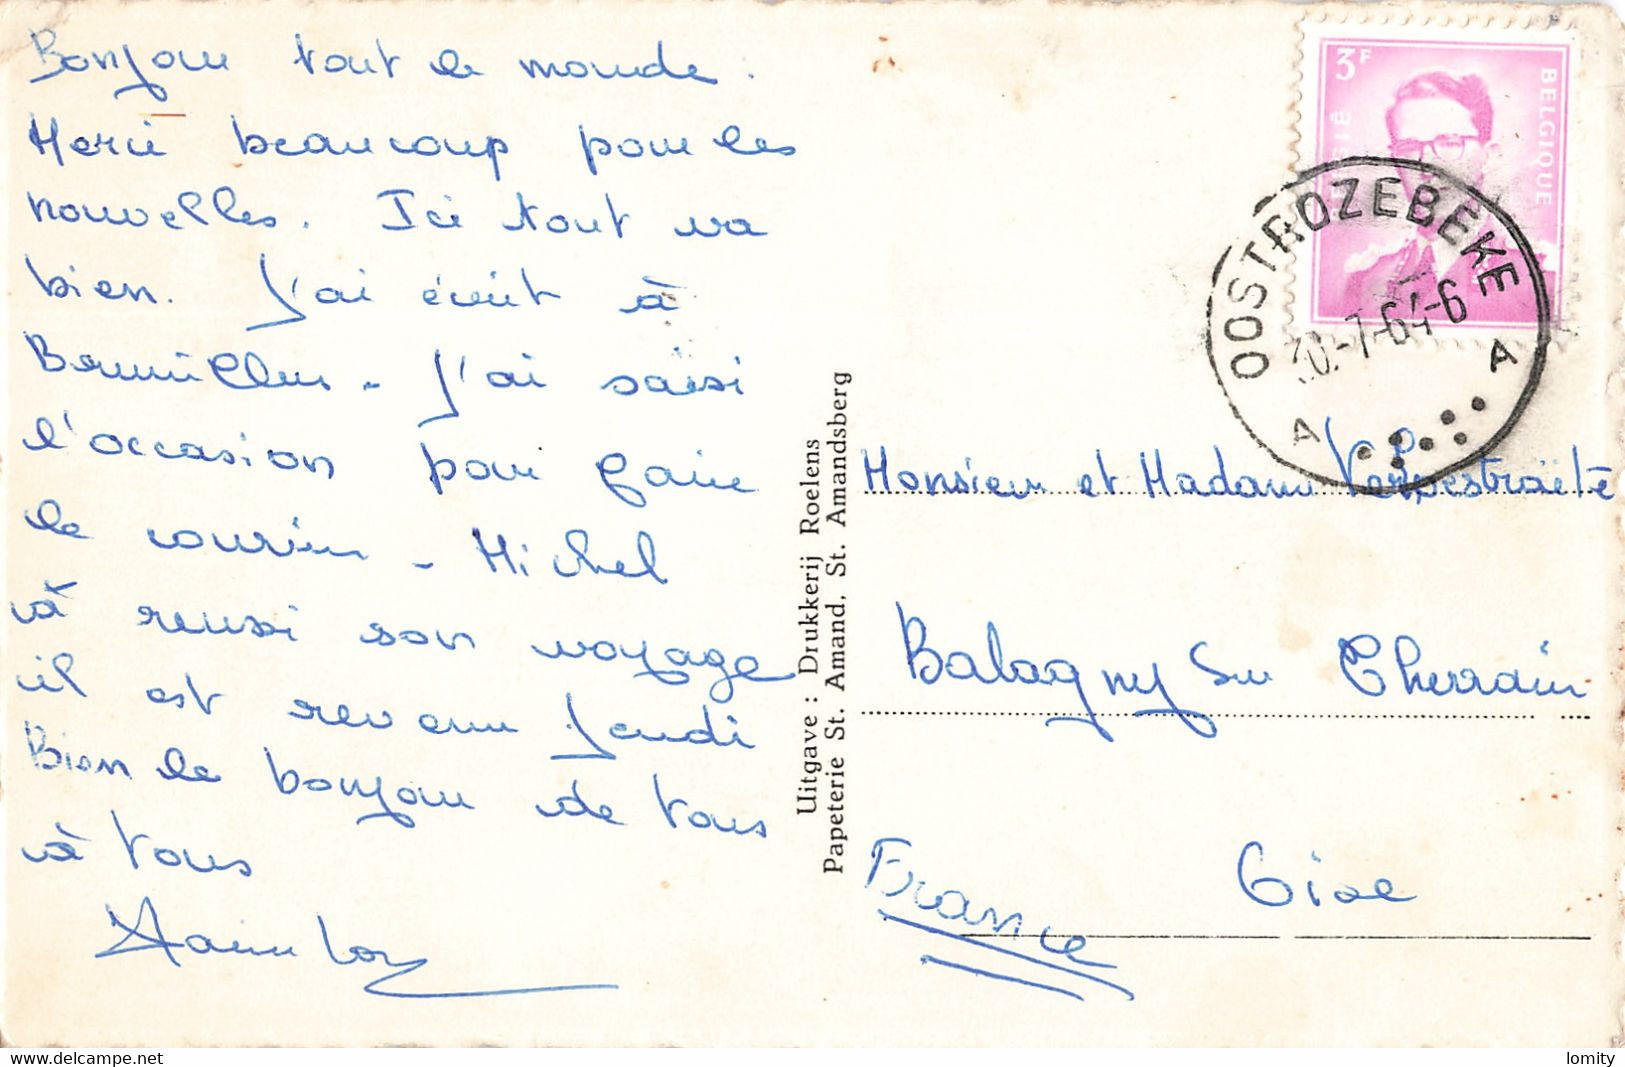 Bonjour tout le monde.
Merci beaucoup pour les
nouvelles. Ici tout va
bien. J'ai écrit à
Bruxelles - J'ai saisi
l'occasion pour faire
le courrier - Michel
à reussi son voyage
il est revenu Jeudi
Bien le bonjour de tous
à tous
Uitgave : Drukkerij Roelens
Papeterie St. Amand, St. Amandsberg
3F
BELGIQUE
BELGIË
OOSTROZEBEKE
30.-7-64-6
A A
Monsieur et Madame
Balagny sur Therrain
Oise
France
www.delcampe.net
lomity